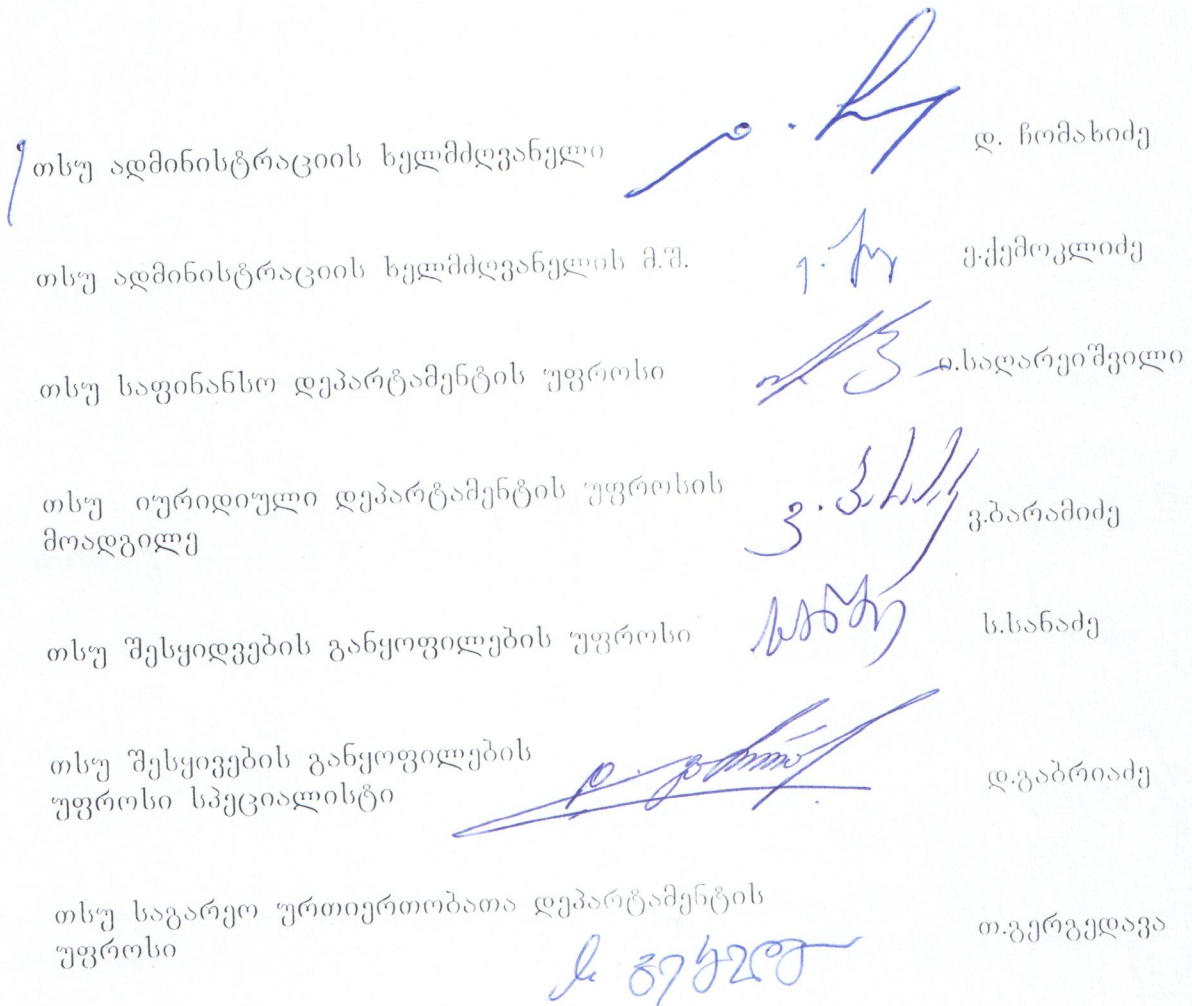 თსუ ადმინისტრაციის ხელმძღვანელი დ. ჩომახიძე
თსუ ადმინისტრაციის ხელმძღვანელის მ.შ. ე.ქემოკლიძე
თსუ საფინანსო დეპარტამენტის უფროსი ი.საღარეიშვილი
თსუ იურიდიული დეპარტამენტის უფროსის
მოადგილე ვ.ბარამიძე
თსუ შესყიდვების განყოფილების უფროსი ს.სანაძე
თსუ შესყივების განყოფილების
უფროსი სპეციალისტი დ.გაბრიაძე
თსუ საგარეო ურთიერთობათა დეპარტამენტის
უფროსი თ.გერგედავა